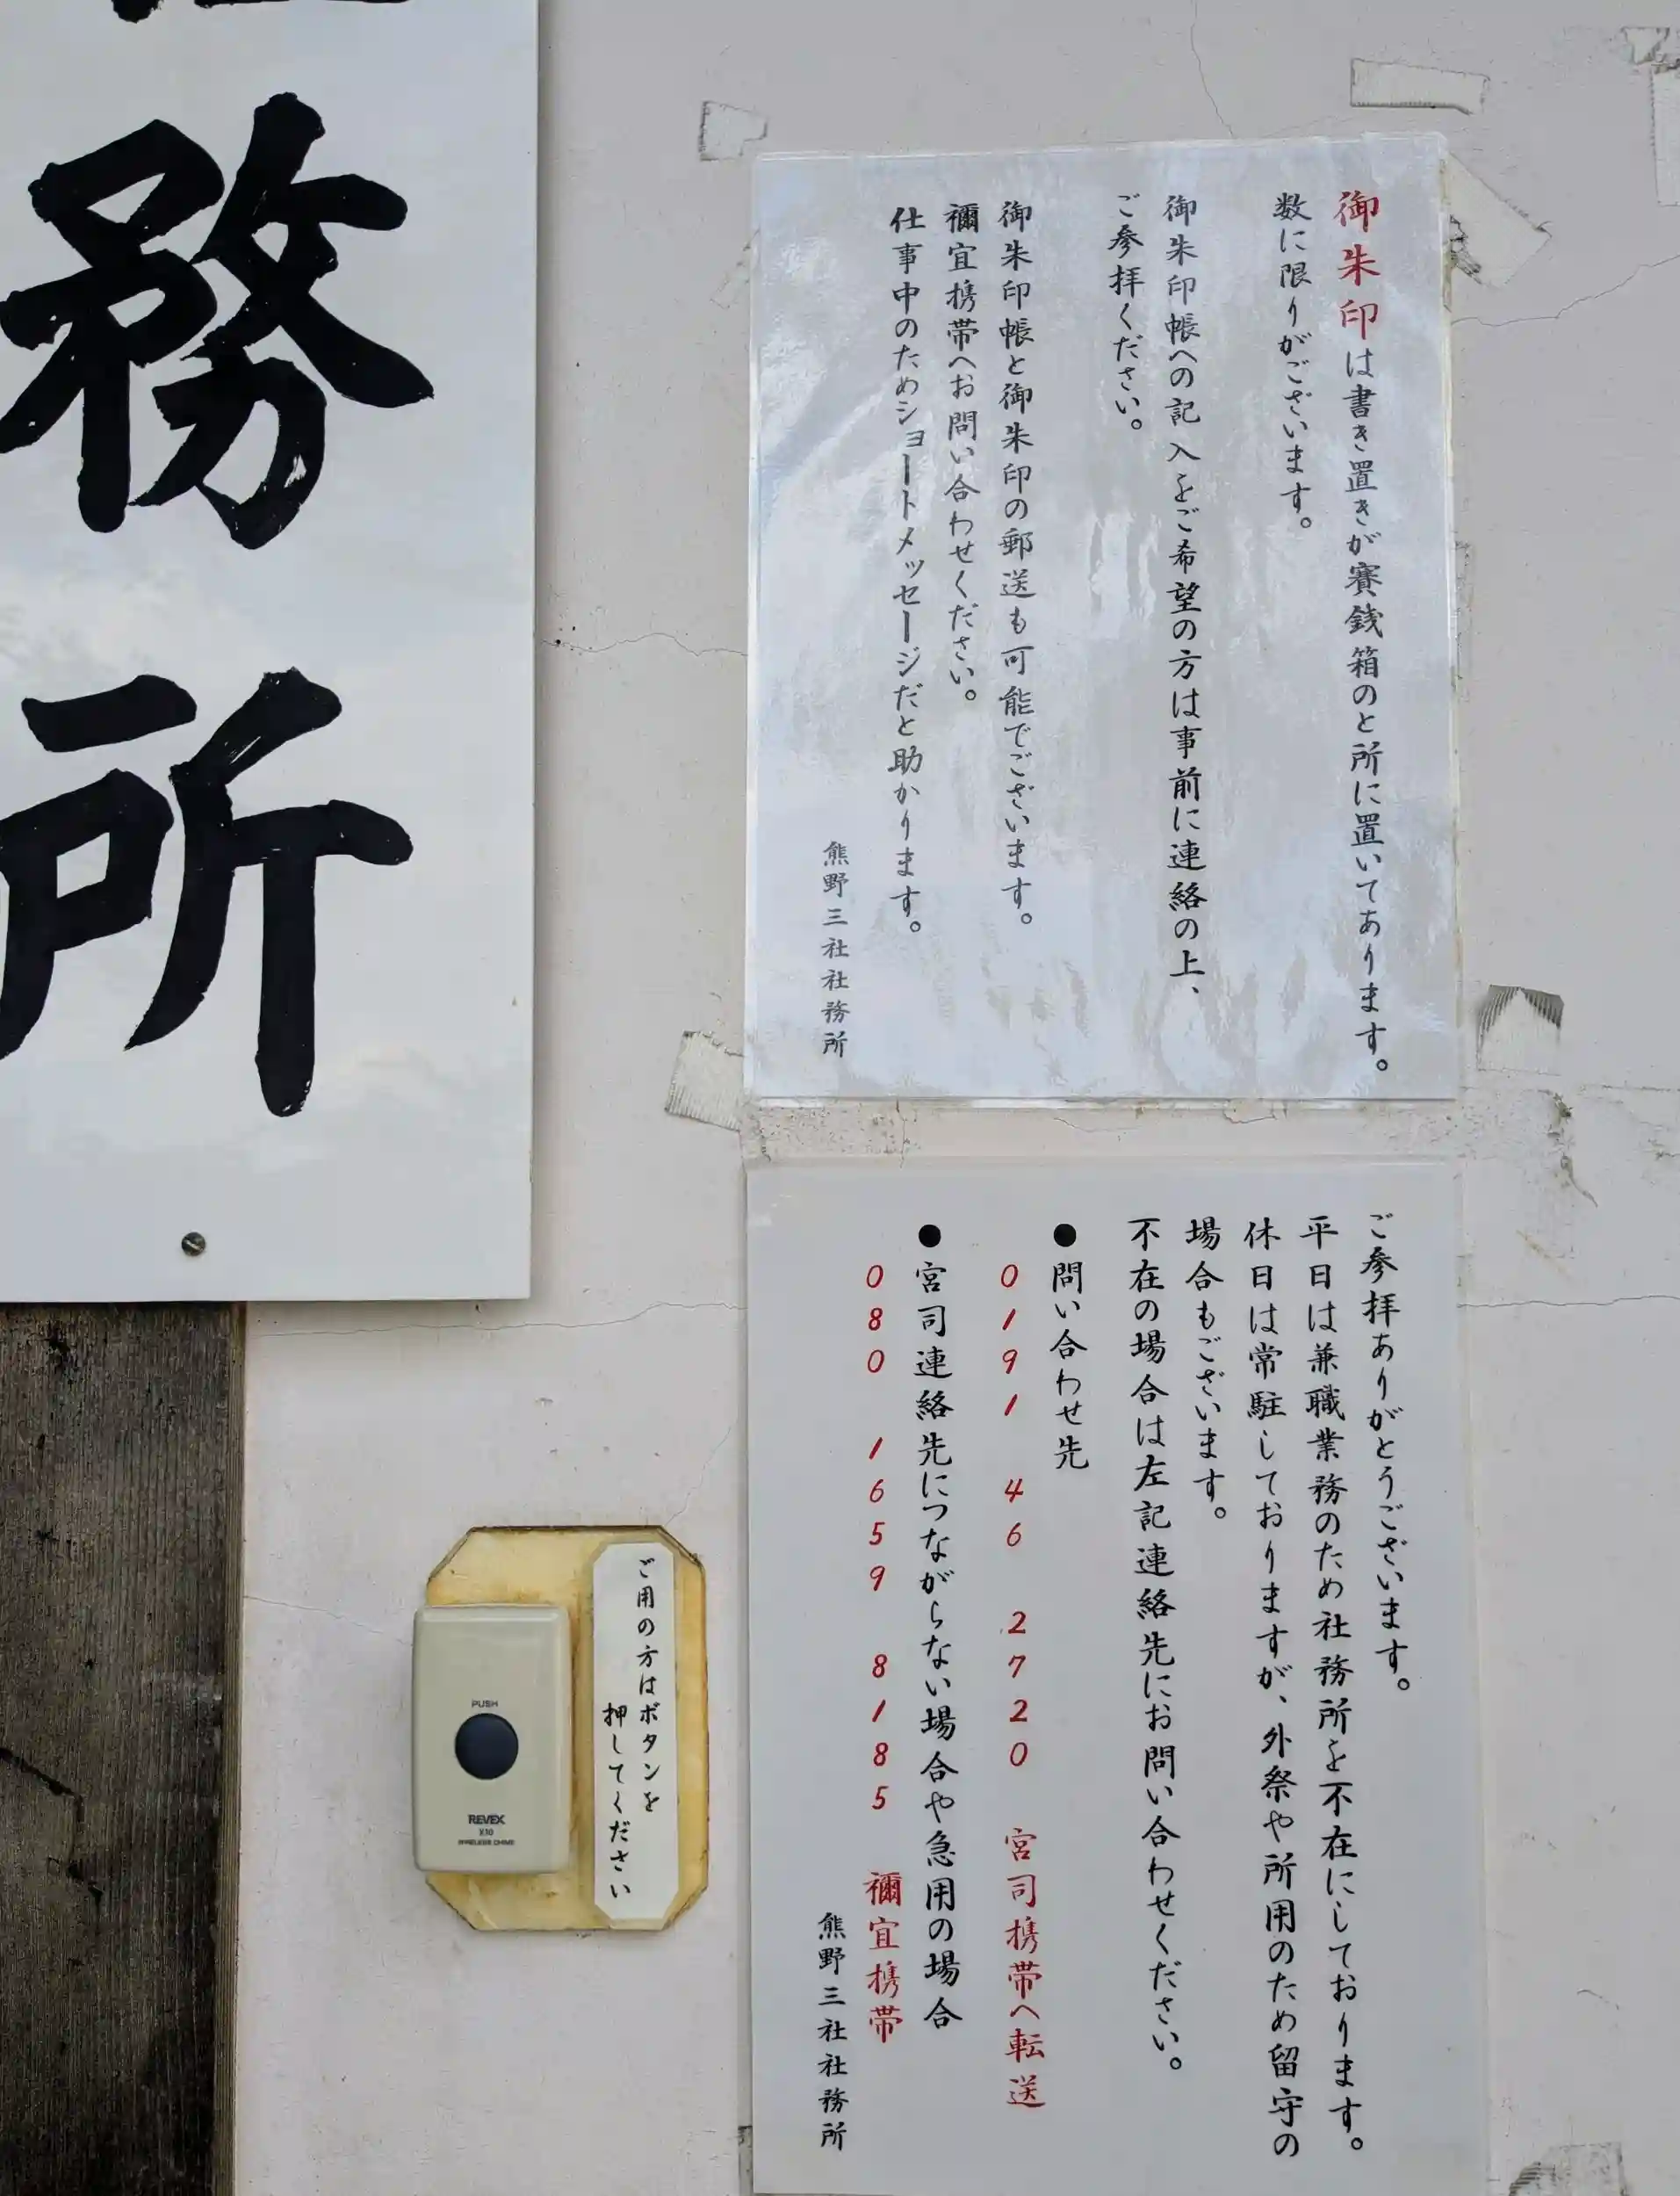 御朱印は書き置きが賽銭箱のと所に置いてあります。
数に限りがございます。
御朱印帳への記入をご希望の方は事前に連絡の上、
ご参拝ください。
御朱印帳と御朱印の郵送も可能でございます。
禰宜携帯へお問い合わせください。
仕事中のためショートメッセージだと助かります。
熊野三社社務所
ご参拝ありがとうございます。
平日は兼職業務のため社務所を不在にしております。
休日は常駐しておりますが、外祭や所用のため留守の
場合もございます。
不在の場合は左記連絡先にお問い合わせください。
●問い合わせ先
0191 46 2720 宮司携帯へ転送
●宮司連絡先につながらない場合や急用の場合
080 1659 8185 禰宜携帯
熊野三社社務所
務所
ご用の方はボタンを
押してください
PUSH
REVEX
X10
WIRELESS CHIME